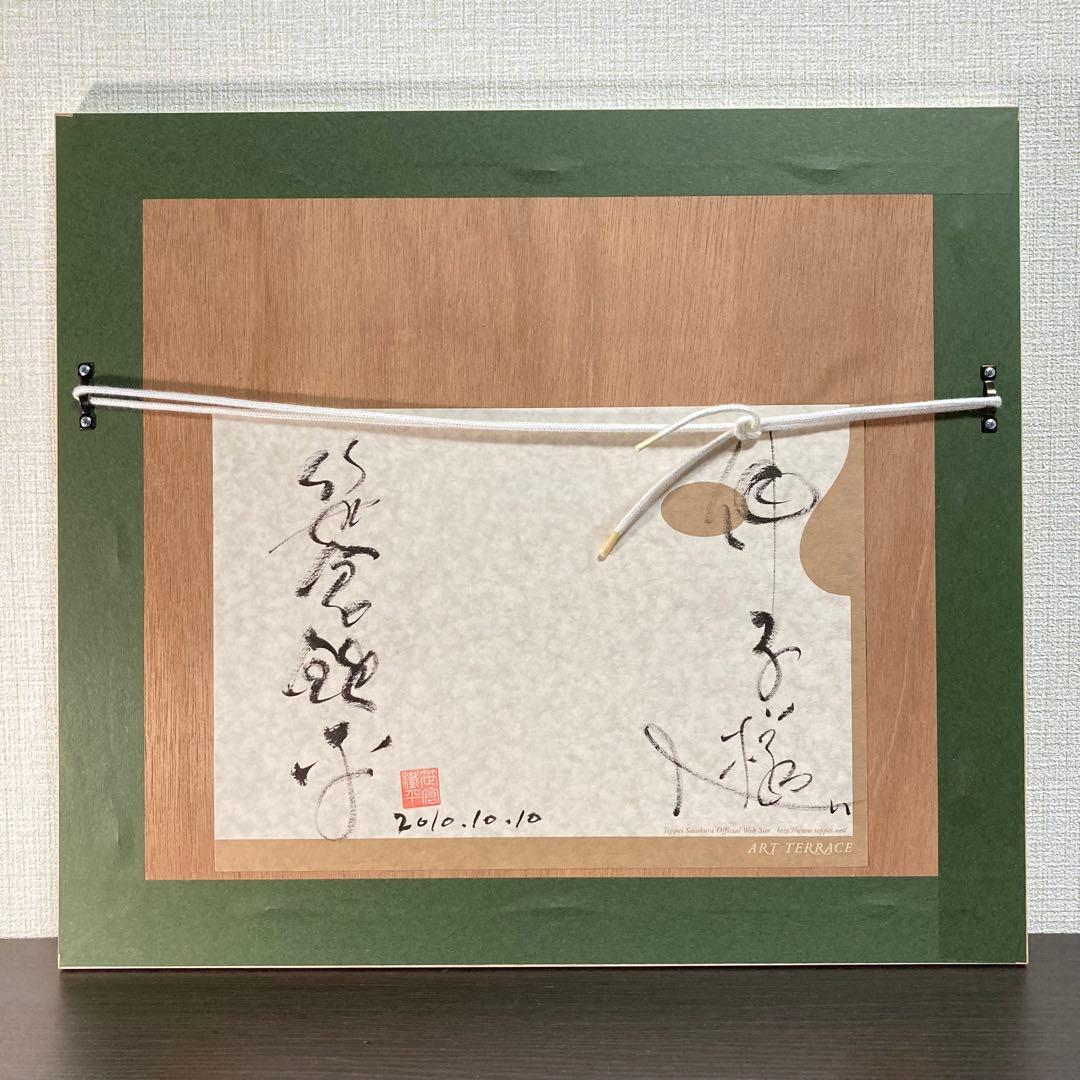 伸子様
笹倉鉄平
笹倉
鐵平
2010.10.10
Teppei Sasakura Official Web Site http://www.teppei.net/
ART TERRACE